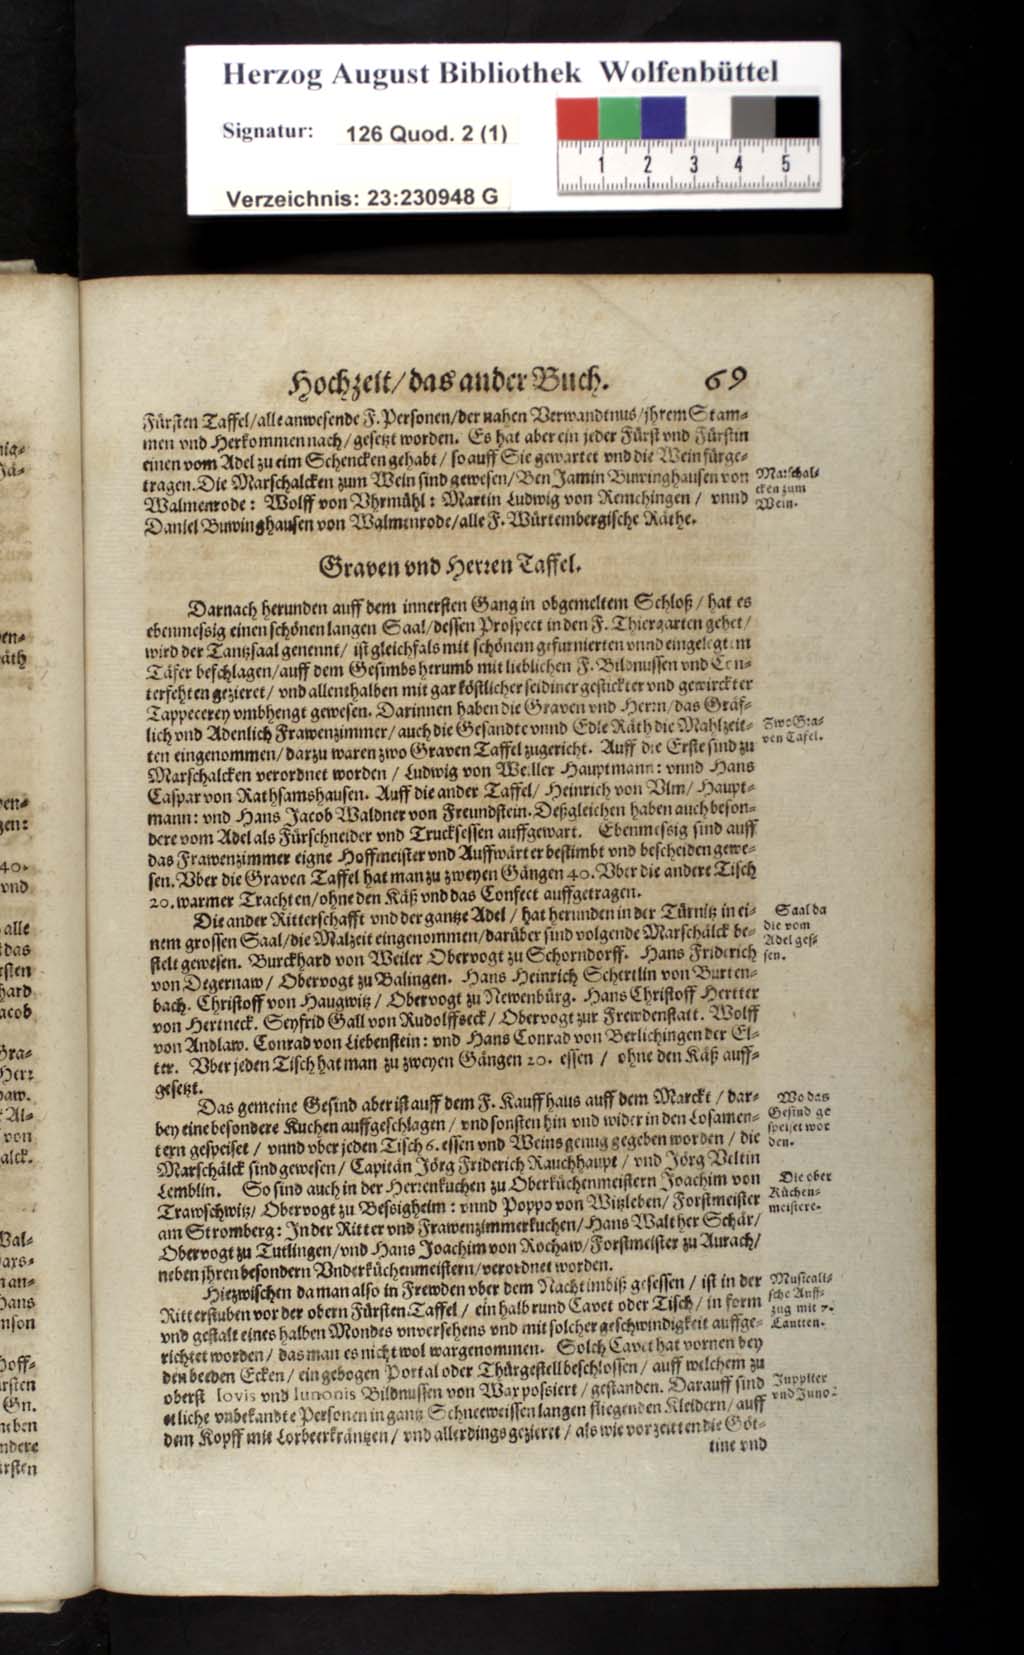 Herzog August Bibliothek Wolfenbüttel
Signatur: 126 Quod. 2 (1)
1 2 3 4 5
Verzeichnis: 23:230948 G
Hochzeit/das ander Buch. 69
Fürsten Taffel/alle anwesende F. Personen/der nahen Verwandtnus/jhrem Stam-
men vnd Herkommen nach/gesetzt worden. Es hat aber ein jeder Fürst vnd Fürstin
einen vom Adel zu eim Schencken gehabt/so auff Sie gewartet vnd die Wein fürge-
tragen. Die Marschalcken zum Wein sind gewesen/Ben Jamin Buwinghausen von
Walmenrode: Wolff von Vhrmühl: Martin Ludwig von Remchingen/vnnd
Daniel Buwinghausen von Walmenrode/alle F. Würtembergische Räthe.
Marschal-
cken zum
Wein.
Graven vnd Herren Taffel.
Darnach herunden auff dem innersten Gang in obgemeltem Schloß/hat es
ebenmessig einen schönen langen Saal/dessen Prospect in den F. Thiergarten gehet/
wird der Tantzsaal genennt/ist gleichfals mit schönem gefurnierten vnnd eingelegtem
Täfer beschlagen/auff dem Gesimbs herumb mit lieblichen F. Bildnussen vnd Con-
terfehten gezieret/vnd allenthalben mit gar köstlicher seidiner gestickter vnd gewirckter
Tappecerey vmbhengt gewesen. Darinnen haben die Graven vnd Herrn/das Gräf-
lich vnd Adenlich Frawenzimmer/auch die Gesandte vnnd Edle Räth die Mahlzeit-
ten eingenommen/darzu waren zwo Graven Taffel zugericht. Auff die Erste sind zu
Marschalcken verordnet worden/Ludwig von Weiler Hauptmann: vnnd Hans
Caspar von Rathsamshausen. Auff die ander Taffel/Heinrich von Vlm/Haupt-
mann: vnd Hans Jacob Waldner von Freundstein. Deßgleichen haben auch beson-
dere vom Adel als Fürschneider vnd Trucksessen auffgewart. Ebenmessig sind auff
das Frawenzimmer eigne Hoffmeister vnd Auffwärter bestimbt vnd bescheiden gewe-
sen. Vber die Graven Taffel hat man zu zweyen Gängen 40. Vber die andere Tisch
20. warmer Trachten/ohne den Käß vnd das Confect auffgetragen.
Zwo Gra-
ven Tafel.
Die ander Ritterschafft vnd der gantze Adel/hat herunden in der Türnitz in ei-
nem grossen Saal/die Malzeit eingenommen/darüber sind volgende Marschälck be-
stelt gewesen. Burckhard von Weiler Obervogt zu Schorndorff. Hans Friderich
von Degernaw/Obervogt zu Balingen. Hans Heinrich Schertlin von Burten-
bach. Christoff von Haugwitz/Obervogt zu Newenbürg. Hans Christoff Hertter
von Hertneck. Seyfrid Gall von Rudolffseck/Obervogt zur Frewdenstatt. Wolff
von Andlaw. Conrad von Liebenstein: vnd Hans Conrad von Berlichingen der El-
ter. Vber jeden Tisch hat man zu zweyen Gängen 20. essen/ohne den Käß auff-
gesetzt.
Saal da
die vom
Adel ges-
sen.
Das gemeine Gesind aber ist auff dem F. Kauffhaus auff dem Marckt/dar-
bey eine besondere Kuchen auffgeschlagen/vnd sonsten hin vnd wider in den Losamen-
tern gespeiset/vnnd vber jeden Tisch 6. essen vnd Weins genug gegeben worden/die
Marschälck sind gewesen/Capitän Jörg Friderich Rauchhaupt/vnd Jörg Veltin
Lemblin. So sind auch in der Herrenkuchen zu Oberküchenmeistern Joachim von
Trawschwitz/Obervogt zu Bessigheim: vnnd Poppo von Witzleben/Forstmeister
am Stromberg: In der Ritter vnd Frawenzimmerkuchen/Hans Walther Schär/
Obervogt zu Tutlingen/vnd Hans Joachim von Rochaw/Forstmeister zu Aurach/
neben jhren besondern Vnderküchenmeistern/verordnet worden.
Wo das
Gesind ge
speiset wor
den.
Die ober
Küchen-
meistere.
Hiezwischen da man also in Frewden vber dem Nachtimbiß gesessen/ist in der
Ritterstuben vor der obern Fürsten Taffel/ein halb rund Cavet oder Tisch/in form
vnd gestalt eines halben Mondes vnversehens vnd mit solcher geschwindigkeit auffge-
richtet worden/das man es nicht wol wargenommen. Solch Cavet hat vornen bey
den beeden Ecken/ein gebogen Portal oder Thürgestell beschlossen/auff welchem zu
oberst Iovis vnd Iunonis Bildnussen von Wax possiert/gestanden. Darauff sind
etliche vnbekandte Personen in gantz Schneeweissen langen fliegenden Kleidern/auff
dem Kopff mit Lorbeerkräntzen/vnd allerdings gezieret/als wie vorzeitten die Göt-
tine vnd
Musicali-
sche Auff-
zug mit 7.
Lautten.
Juppiter
vnd Juno.